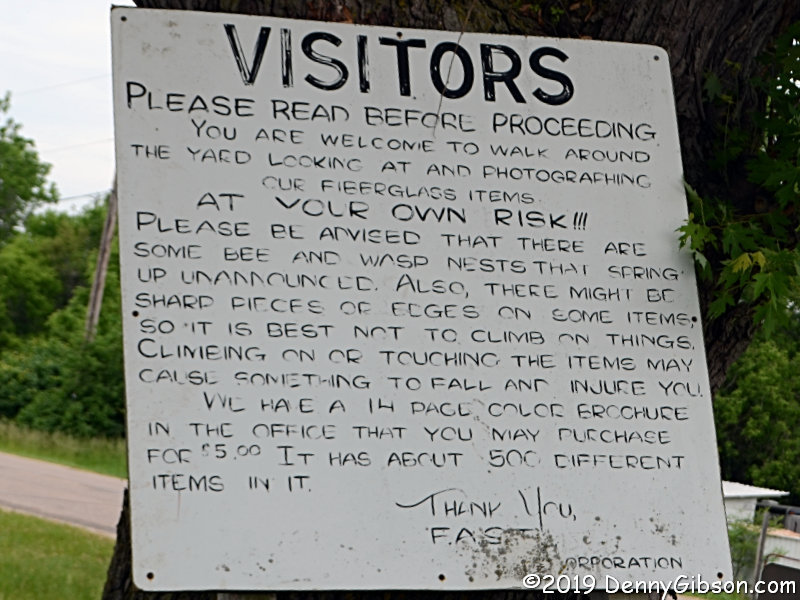 VISITORS
PLEASE READ BEFORE PROCEEDING.
YOU ARE WELCOME TO WALK AROUND
THE YARD LOOKING AT AND PHOTOGRAPHING
OUR FIBERGLASS ITEMS
AT YOUR OWN RISK!!!
PLEASE BE ADVISED THAT THERE ARE
SOME BEE AND WASP NESTS THAT SPRING
UP UNANNOUNCED. ALSO, THERE MIGHT BE
SHARP PIECES OR EDGES ON SOME ITEMS,
SO IT IS BEST NOT TO CLIMB ON THINGS.
CLIMBING ON OR TOUCHING THE ITEMS MAY
CAUSE SOMETHING TO FALL AND INJURE YOU.
WE HAVE A 14 PAGE COLOR BROCHURE
IN THE OFFICE THAT YOU MAY PURCHASE
FOR $5.00 IT HAS ABOUT 500 DIFFERENT
ITEMS IN IT.
THANK YOU,
F.A.S.T.
ORPORATION
©2019 DennyGibson.com